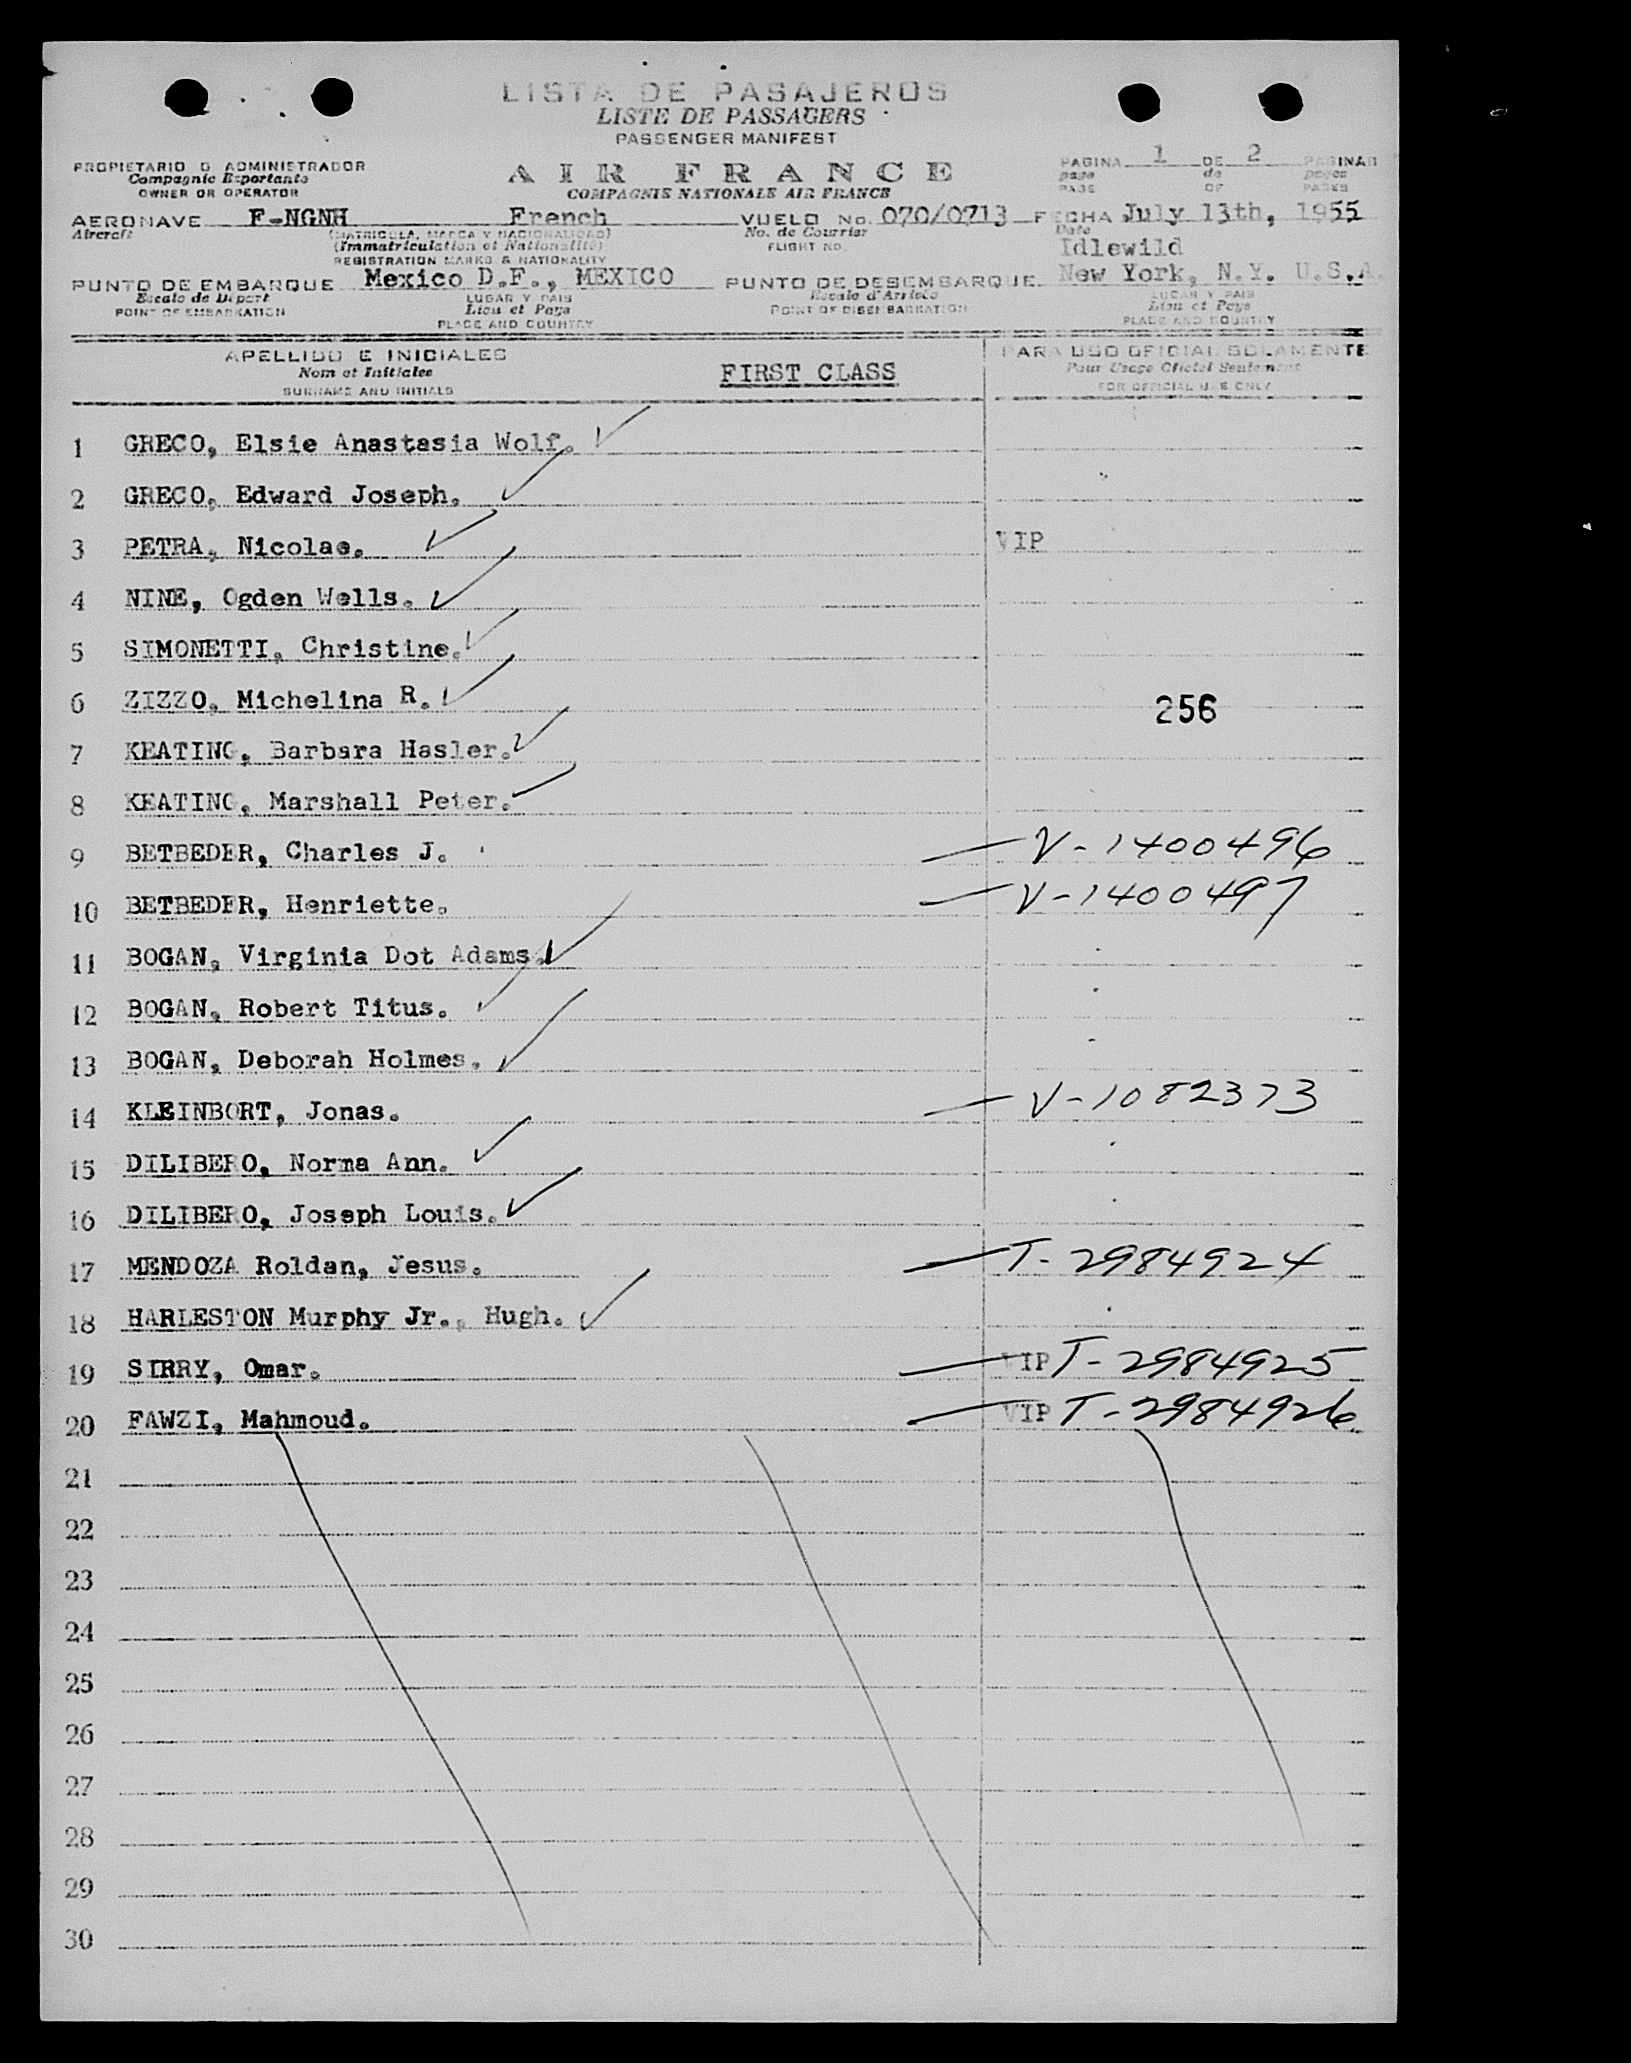 LISTA DE PASAJEROS
LISTE DE PASSAGERS
PASSENGER MANIFEST
PROPIETARIO O ADMINISTRADOR
Compagnie Exportante
OWNER OR OPERATOR
AIR FRANCE
COMPAGNIE NATIONALE AIR FRANCE
PAGINA 1 DE 2 PAGINAS
page de pages
PAGE OF PAGES
AERONAVE F-NGNH French VUELO No. 070/0713 FECHA July 13th, 1955
Aircraft (MATRICULA, MARCA Y NACIONALIDAD) No. de Courrier Date
(Immatriculation et Nationalité) FLIGHT NO. Idlewild
REGISTRATION MARKS & NATIONALITY
PUNTO DE EMBARQUE Mexico D.F., MEXICO PUNTO DE DESEMBARQUE New York, N.Y. U.S.A.
Escale de Départ LUGAR Y PAIS Escale d'Arrivée LUGAR Y PAIS
POINT OF EMBARKATION Lieu et Pays POINT OF DISEMBARKATION Lieu et Pays
PLACE AND COUNTRY PLACE AND COUNTRY
APELLIDO E INICIALES PARA USO OFICIAL SOLAMENTE
Nom et Initiales FIRST CLASS Pour Usage Officiel Seulement
SURNAME AND INITIALS FOR OFFICIAL USE ONLY
1 GRECO, Elsie Anastasia Wolf.
2 GRECO, Edward Joseph.
3 PETRA, Nicolas. VIP
4 NINE, Ogden Wells.
5 SIMONETTI, Christine.
6 ZIZZO, Michelina R. 256
7 KEATING, Barbara Hasler.
8 KEATING, Marshall Peter.
9 BETBEDER, Charles J. V-1400496
10 BETBEDER, Henriette. V-1400497
11 BOGAN, Virginia Dot Adams.
12 BOGAN, Robert Titus.
13 BOGAN, Deborah Holmes.
14 KLEINBORT, Jonas. V-1082373
15 DILIBERO, Norma Ann.
16 DILIBERO, Joseph Louis.
17 MENDOZA Roldan, Jesus. T-2984924
18 HARLESTON Murphy Jr., Hugh.
19 SIRRY, Omar. VIP T-2984925
20 FAWZI, Mahmoud. VIP T-2984926
21
22
23
24
25
26
27
28
29
30